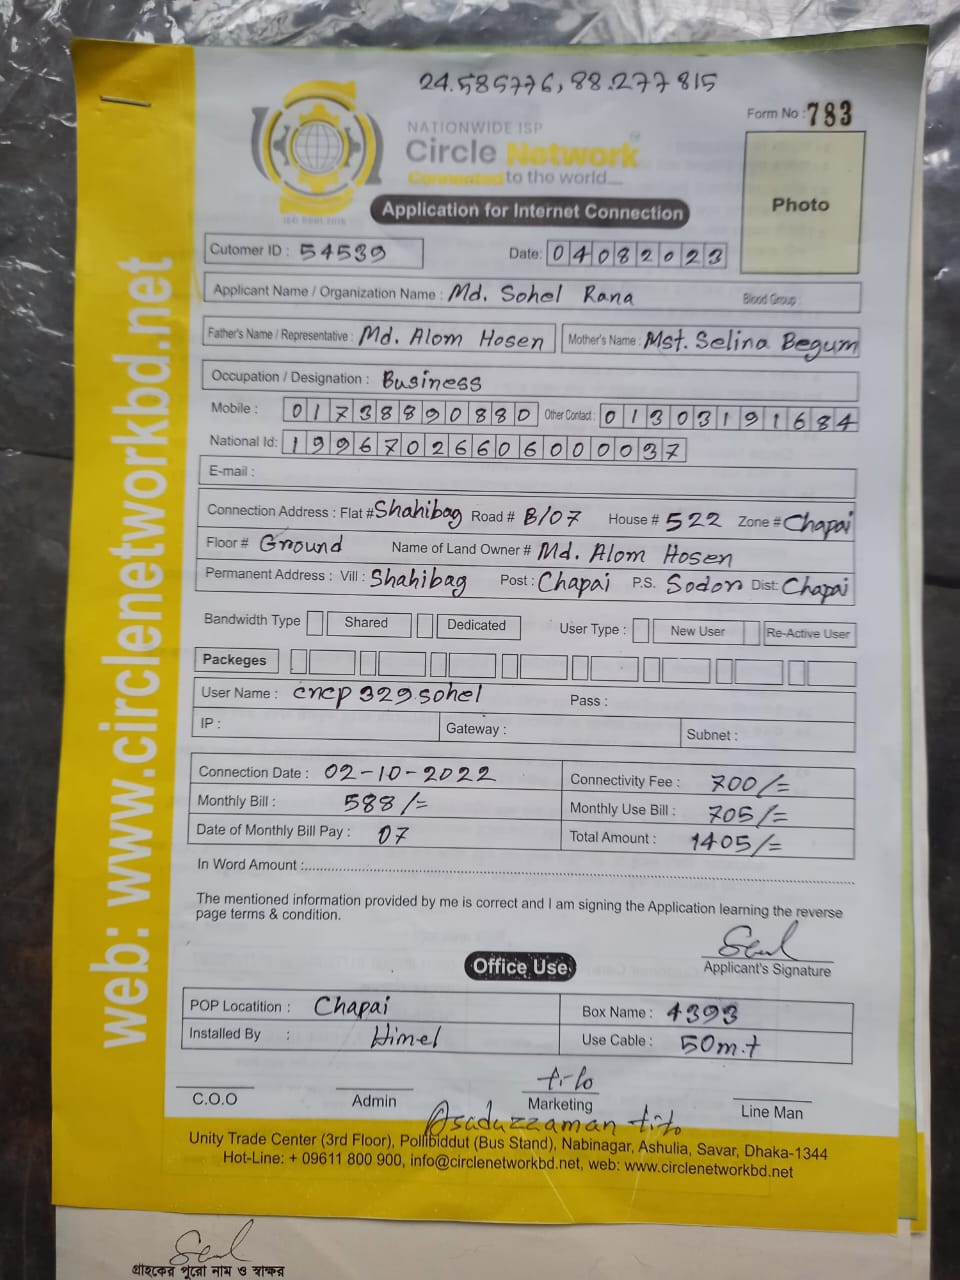 24.585776, 88.277815
Form No : 783
NATIONWIDE ISP
Circle Network
Connected to the world....
ISO 9001:2015
Photo
Application for Internet Connection
Cutomer ID : 54539 Date: 04082023
Applicant Name / Organization Name : Md. Sohel Rana Blood Group :
Father's Name / Representative : Md. Alom Hosen Mother's Name : Mst. Selina Begum
Occupation / Designation : Business
Mobile : 01738890880 Other Contact : 01303191684
National Id: 19967026606000037
E-mail :
Connection Address : Flat # Shahibag Road # B/07 House # 522 Zone # Chapai
Floor # Ground Name of Land Owner # Md. Alom Hosen
Permanent Address : Vill : Shahibag Post : Chapai P.S. Sodor Dist: Chapai
Bandwidth Type Shared Dedicated User Type : New User Re-Active User
Packeges
User Name : cncp329.sohel Pass :
IP : Gateway : Subnet :
Connection Date : 02-10-2022 Connectivity Fee : 700/=
Monthly Bill : 588/= Monthly Use Bill : 705/=
Date of Monthly Bill Pay : 07 Total Amount : 1405/=
In Word Amount :
The mentioned information provided by me is correct and I am signing the Application learning the reverse
page terms & condition.
Applicant's Signature
Office Use
POP Locatition : Chapai Box Name : 4393
Installed By : Himel Use Cable : 50m.t
C.O.O Admin Marketing Line Man
Asaduzzaman tito
Unity Trade Center (3rd Floor), Pollibiddut (Bus Stand), Nabinagar, Ashulia, Savar, Dhaka-1344
Hot-Line: + 09611 800 900, info@circlenetworkbd.net, web: www.circlenetworkbd.net
web: www.circlenetworkbd.net
গ্রাহকের পুরো নাম ও স্বাক্ষর